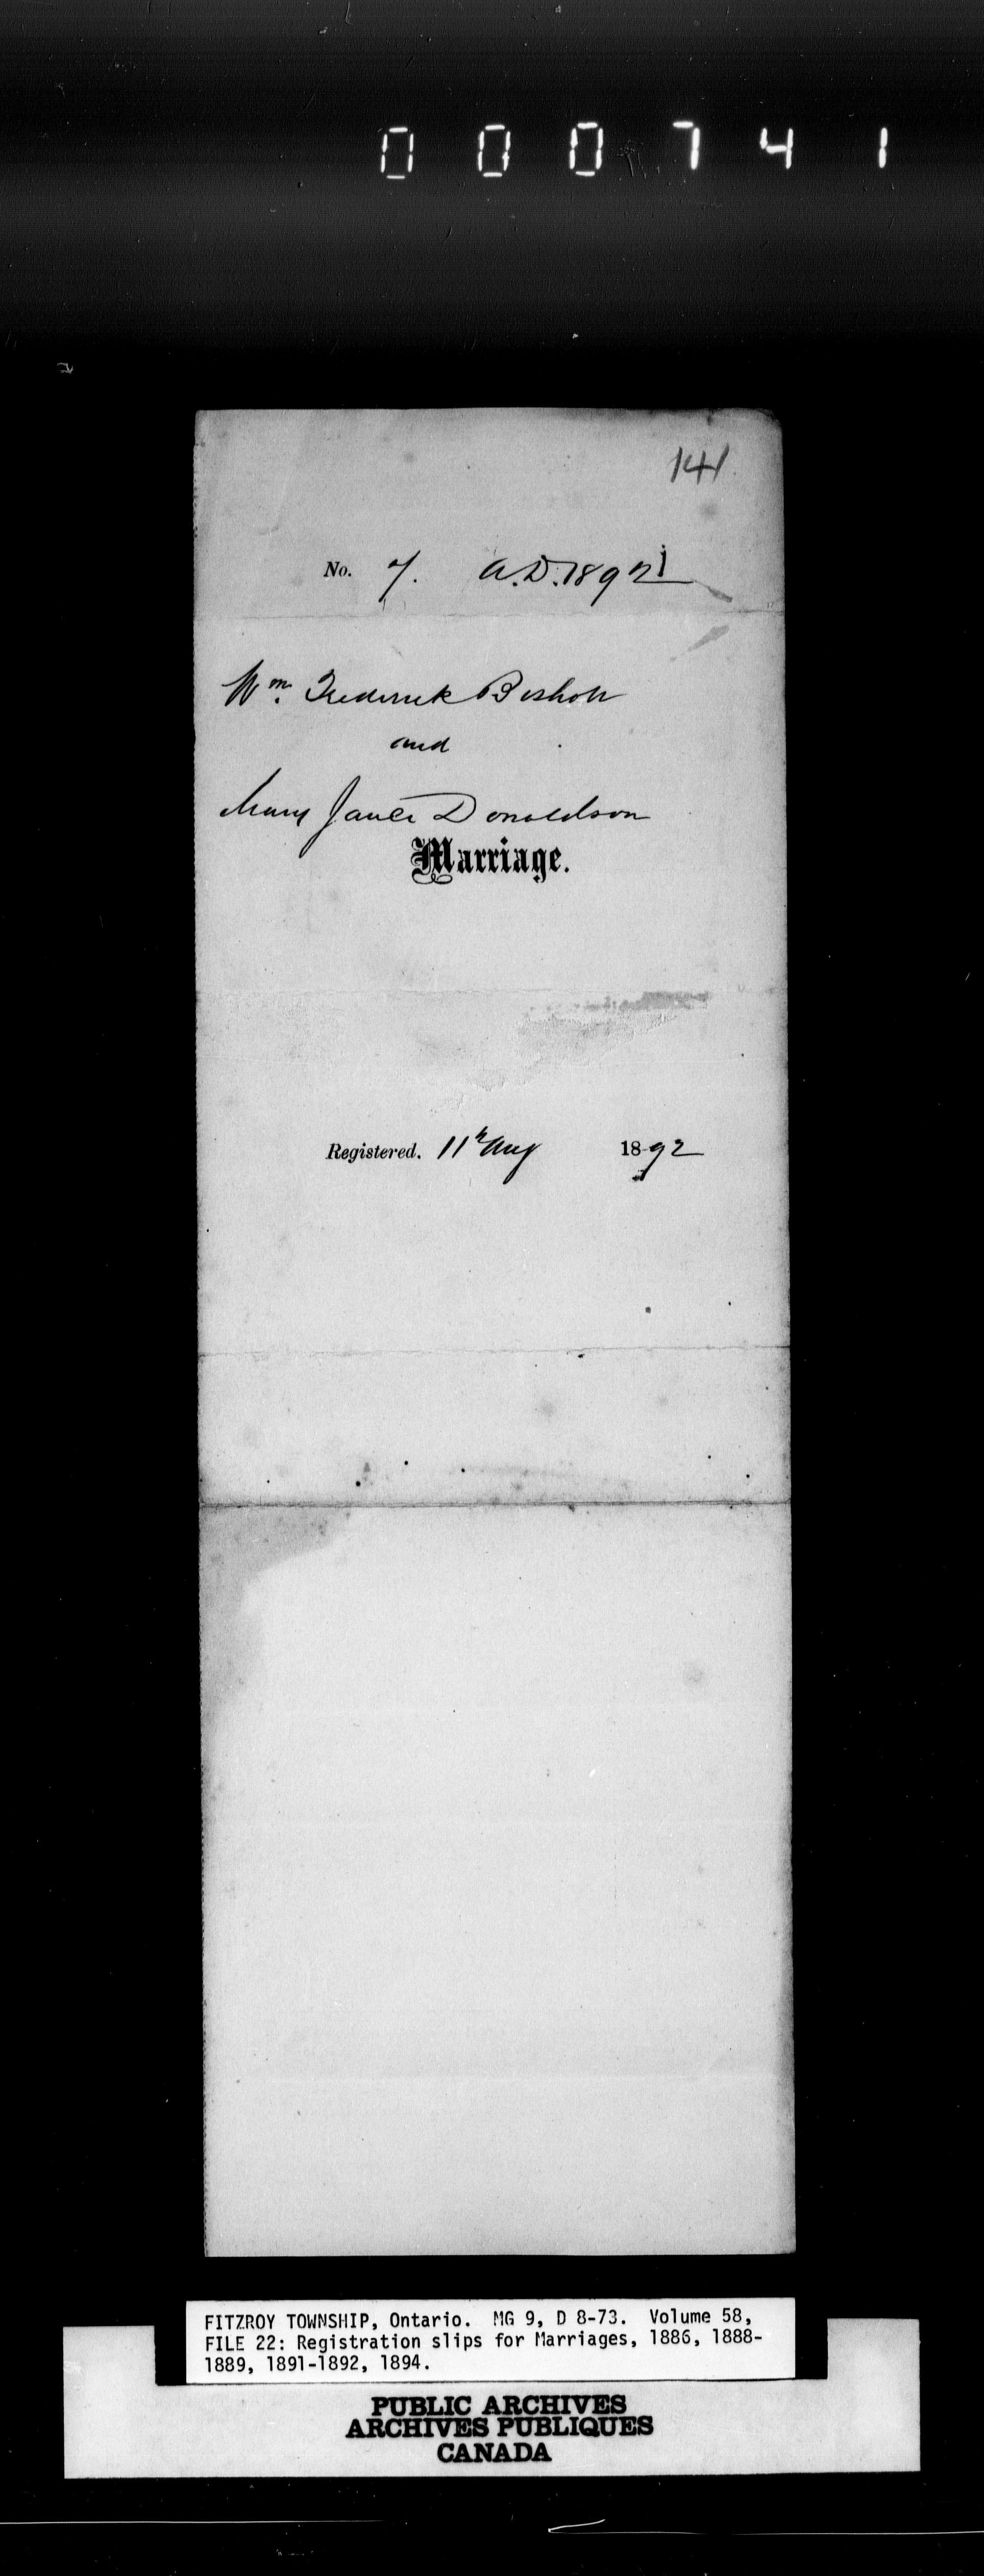 000741
141
No. 7. A.D. 1892
Wm. Frederick Bishop
and
Mary Jane Donaldson
Marriage.
Registered. 11th Aug 1892
FITZROY TOWNSHIP, Ontario. MG 9, D 8-73. Volume 58,
FILE 22: Registration slips for Marriages, 1886, 1888-
1889, 1891-1892, 1894.
PUBLIC ARCHIVES
ARCHIVES PUBLIQUES
CANADA